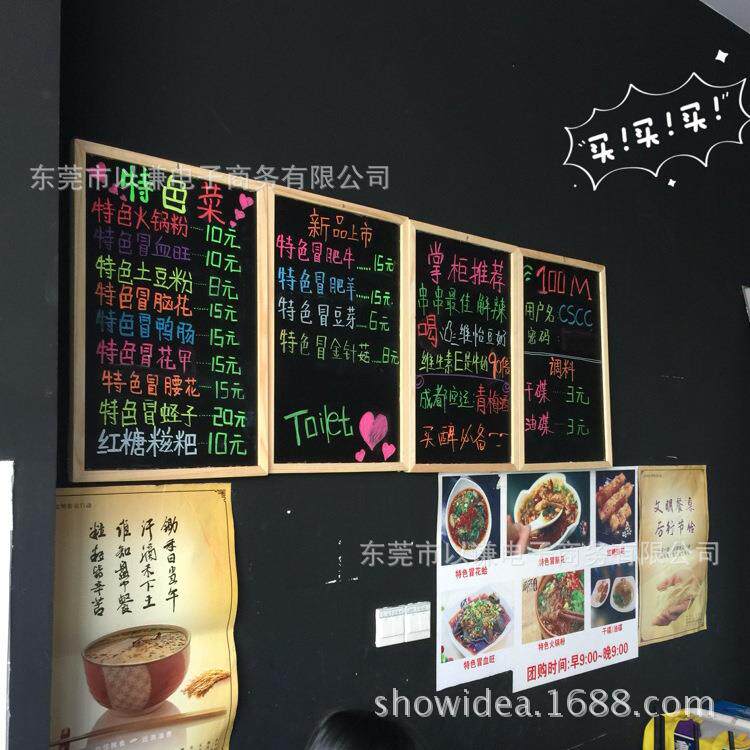 买！买！买！
东莞市以谦电子商务有限公司
特色菜
特色火锅粉 10元
特色冒血旺 10元
特色土豆粉 8元
特色冒脑花 15元
特色冒鸭肠 15元
特色冒花甲 15元
特色冒腰花 15元
特色冒蛏子 20元
红糖糍粑 10元
新品上市
特色冒肥牛 15元
特色冒肥羊 15元
特色冒豆芽 6元
特色冒金针菇 8元
Toilet
掌柜推荐
串串最佳 解辣
喝 维怡豆奶
维生素E是牛奶的90倍
成都空运 青梅酒
买醉必备
100M
用户名: CSCC
密码:
调料
干碟 3元
油碟 3元
锄禾日当午
汗滴禾下土
谁知盘中餐
粒粒皆辛苦
东莞市以谦电子商务有限公司
特色冒花蛤
特色冒血旺
特色火锅粉
干碟/油碟
团购时间:早9:00~晚9:00
文明餐桌
厉行节俭
showidea.1688.com